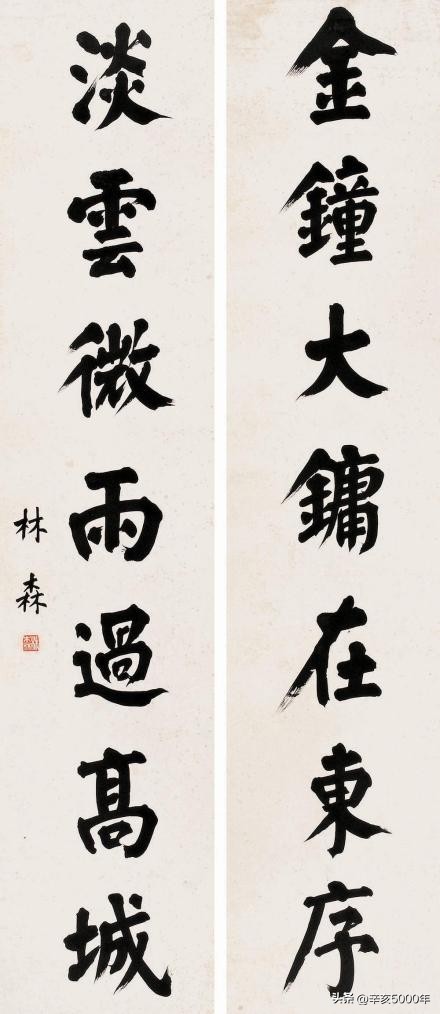 金鐘大鏞在東序
淡雲微雨過高城
林森
头条 @辛亥5000年